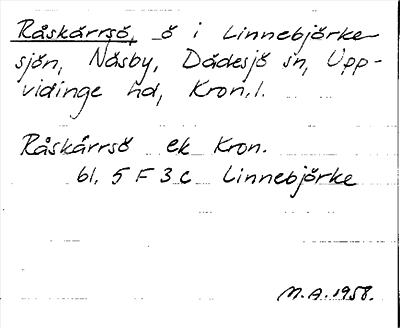 Råskärrsö, ö i Linnebjörke-
sjön, Näsby, Dädesjö sn, Upp-
vidinge hd, Kron.l.
Råskärrsö ek Kron.
bl. 5 F 3 c Linnebjörke
M.A. 1958.